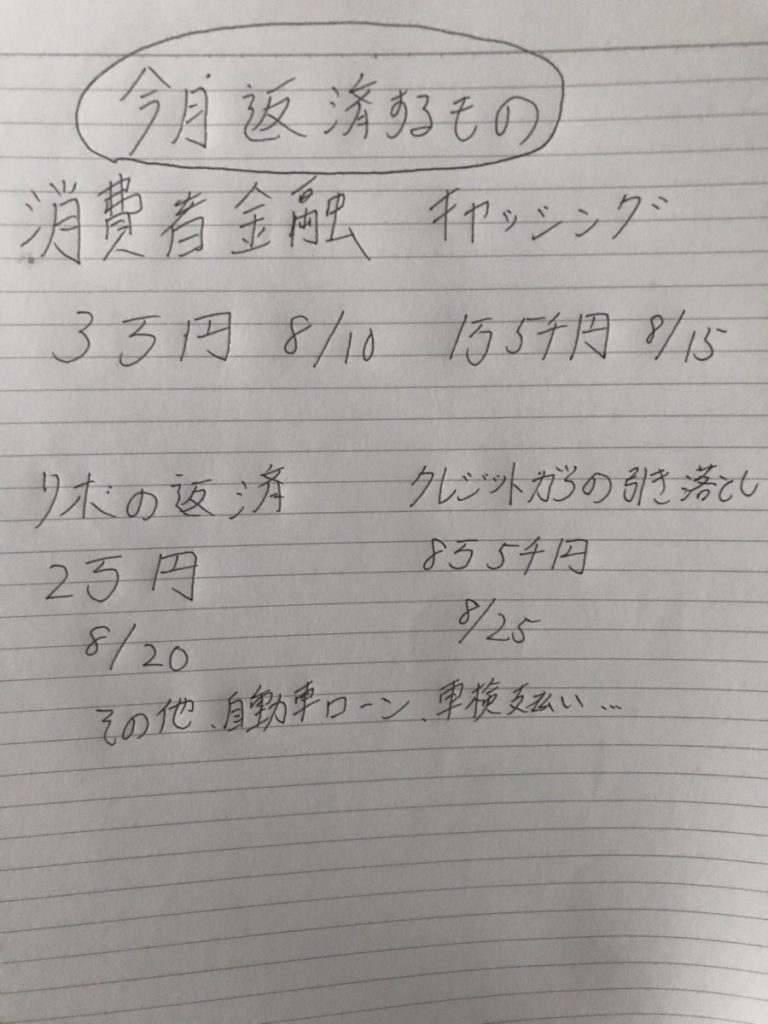 今月返済するもの
消費者金融 キャッシング
3万円 8/10 1万5千円 8/15
リボの返済 クレジットカードの引き落とし
2万円 8万5千円
8/20 8/25
その他、自動車ローン、車検支払い…